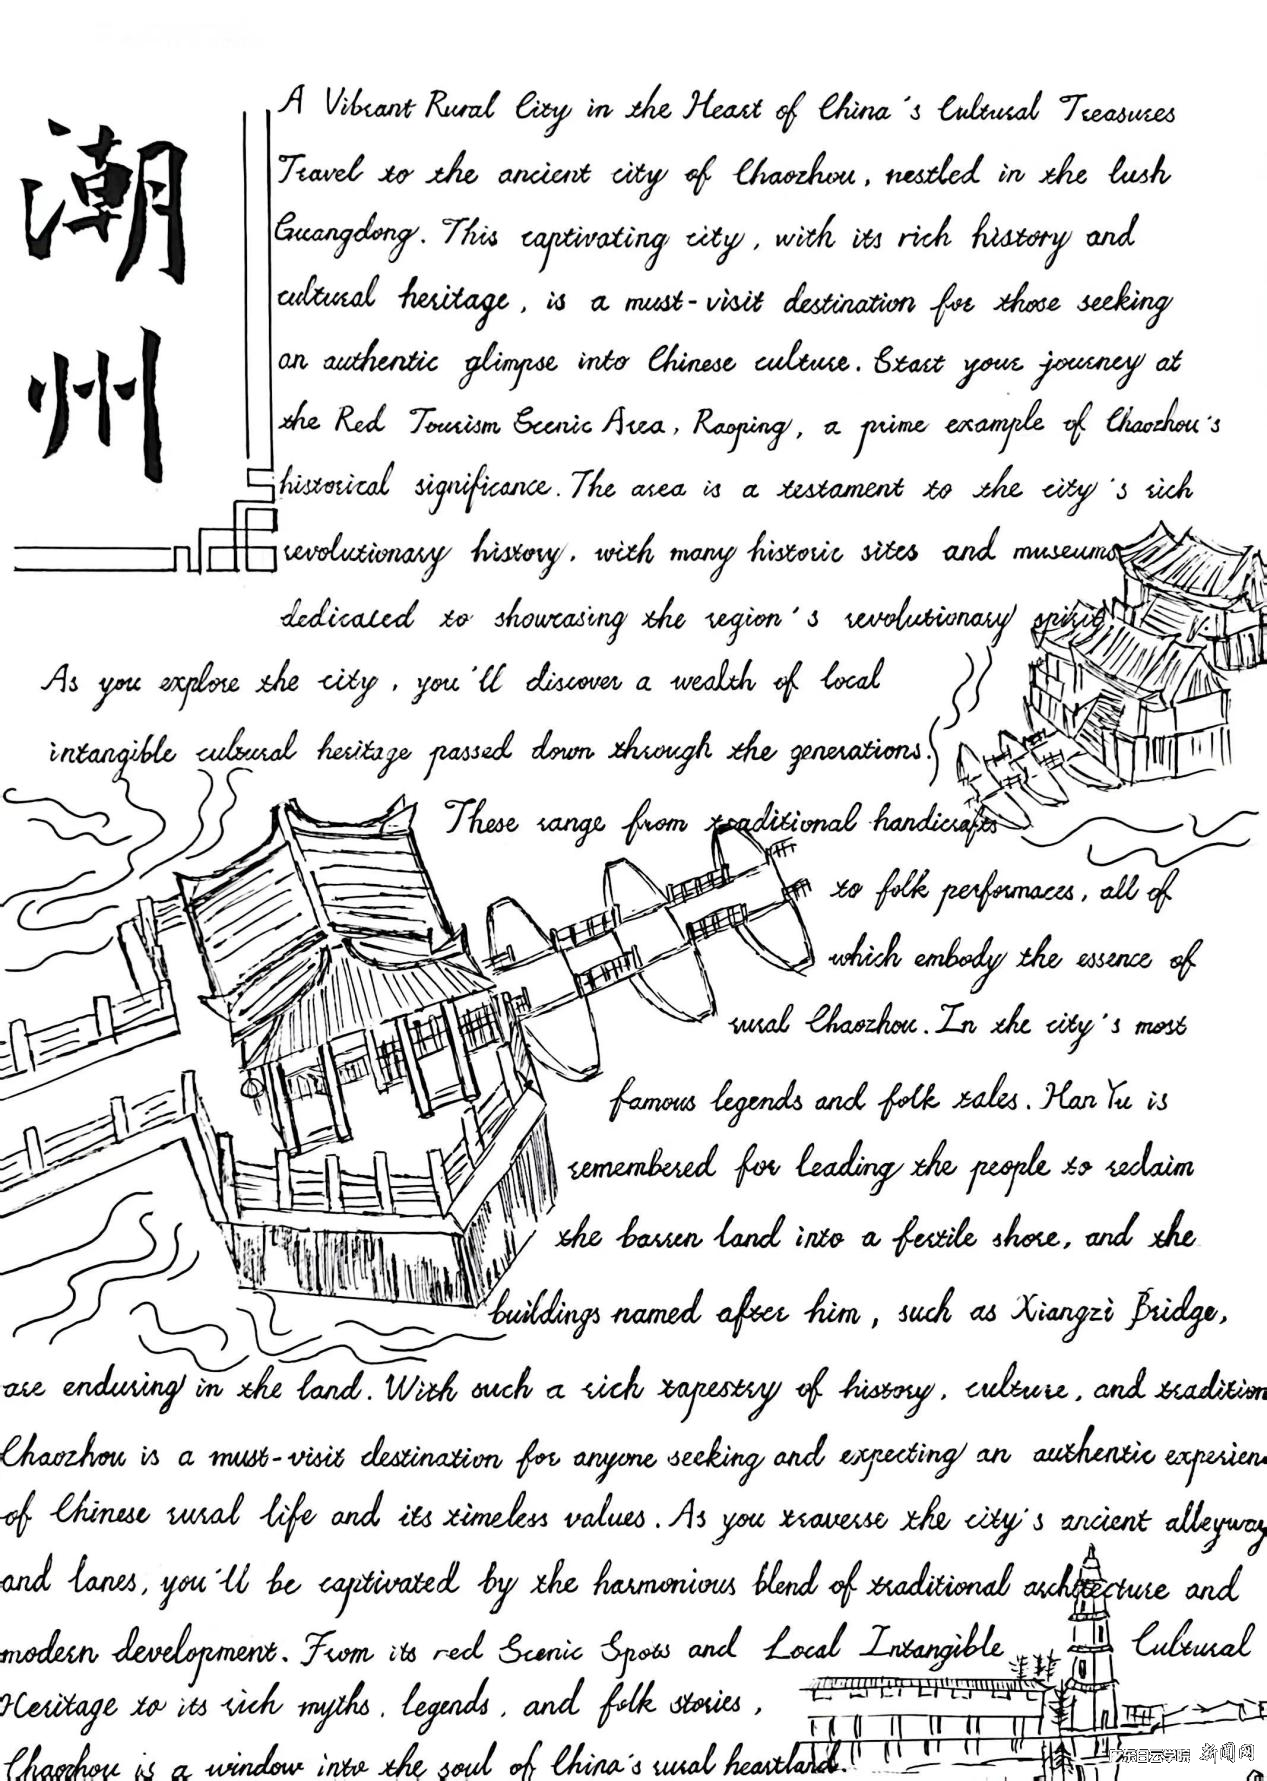 潮州
A Vibrant Rural City in the Heart of China's Cultural Treasures
Travel to the ancient city of Chaozhou, nestled in the lush
Guangdong. This captivating city, with its rich history and
cultural heritage, is a must-visit destination for those seeking
an authentic glimpse into Chinese culture. Start your journey at
the Red Tourism Scenic Area, Raoping, a prime example of Chaozhou's
historical significance. The area is a testament to the city's rich
revolutionary history, with many historic sites and museums
dedicated to showcasing the region's revolutionary spirit
As you explore the city, you'll discover a wealth of local
intangible cultural heritage passed down through the generations.
These range from traditional handicrafts
to folk performaces, all of
which embody the essence of
rural Chaozhou. In the city's most
famous legends and folk tales. Han Yu is
remembered for leading the people to reclaim
the barren land into a fertile shore, and the
buildings named after him, such as Xiangzi Bridge,
are enduring in the land. With such a rich tapestry of history, culture, and tradition
Chaozhou is a must-visit destination for anyone seeking and expecting an authentic experienc
of Chinese rural life and its timeless values. As you traverse the city's ancient alleyway
and lanes, you'll be captivated by the harmonious blend of traditional architecture and
modern development. From its red Scenic Spots and Local Intangible Cultural
Heritage to its rich myths, legends, and folk stories,
Chaozhou is a window into the soul of China's rural heartland.
广东白云学院 新闻网